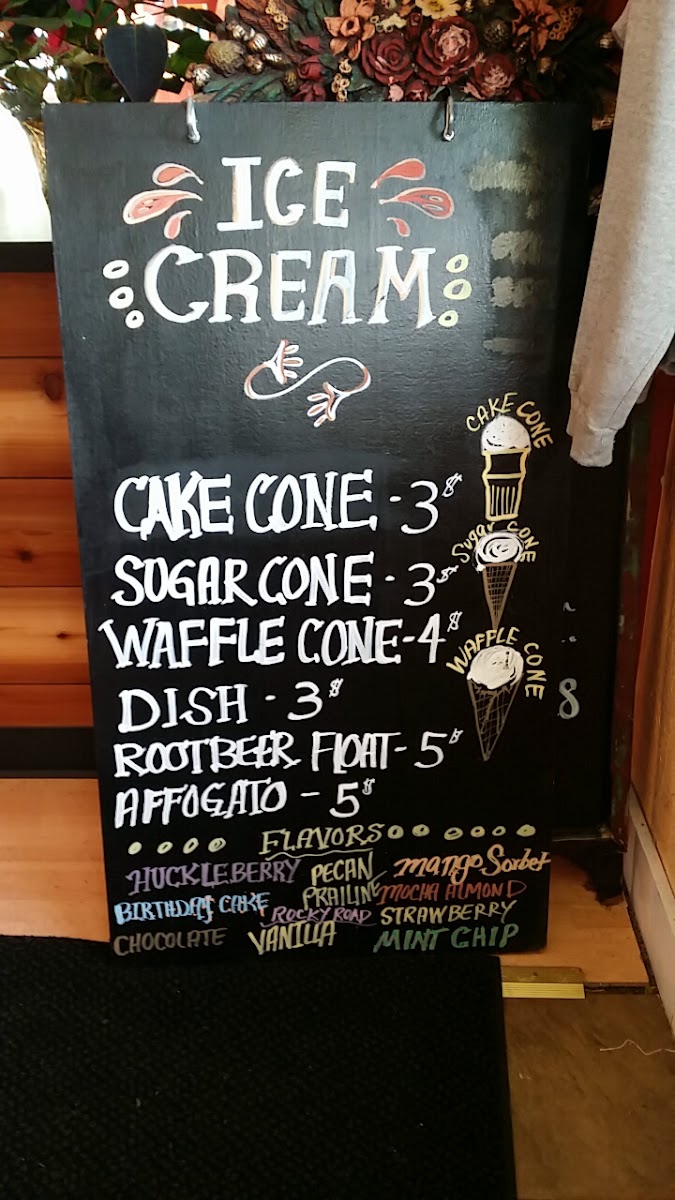 ICE
CREAM
CAKE CONE
CAKE CONE - 3$
Sugar CONE
SUGAR CONE - 3$
WAFFLE CONE - 4$
WAFFLE CONE
DISH - 3$
ROOTBEER FLOAT - 5$
AFFOGATO - 5$
FLAVORS
HUCKLEBERRY PECAN PRAILINE mango Sorbet
BIRTHDAY CAKE MOCHA ALMOND
ROCKY ROAD STRAWBERRY
CHOCOLATE VANILLA MINT CHIP
8